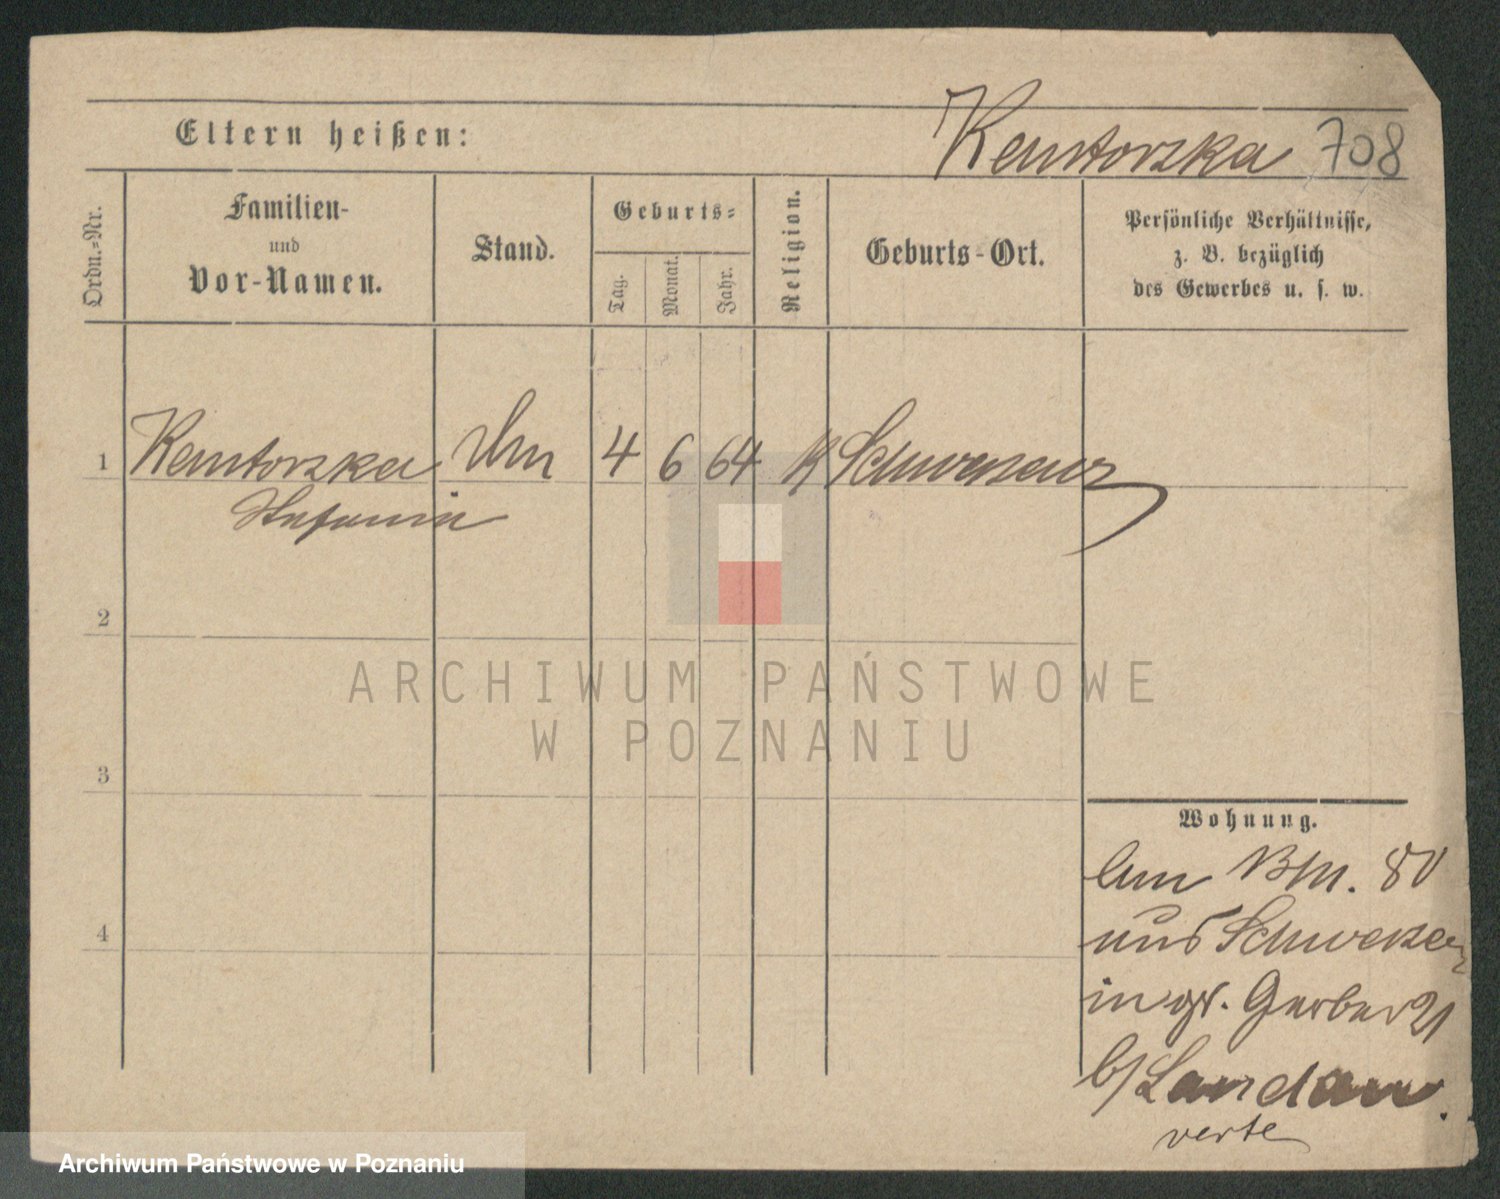 Eltern heißen:
Kantorska 708
Ordn.-Nr.
Familien-
und
Vor-Namen.
Stand.
Geburts-
Tag.
Monat.
Jahr.
Religion.
Geburts-Ort.
Persönliche Verhältnisse,
z. B. bezüglich
des Gewerbes u. s. w.
1 Kantorska 4 6 64 K Schwersenz
Stefania
2
3
4
ARCHIWUM PAŃSTWOWE
W POZNANIU
Wohnung.
80
aus Schwersenz
in gr. Gerber 21
b/ Landau.
verte
Archiwum Państwowe w Poznaniu